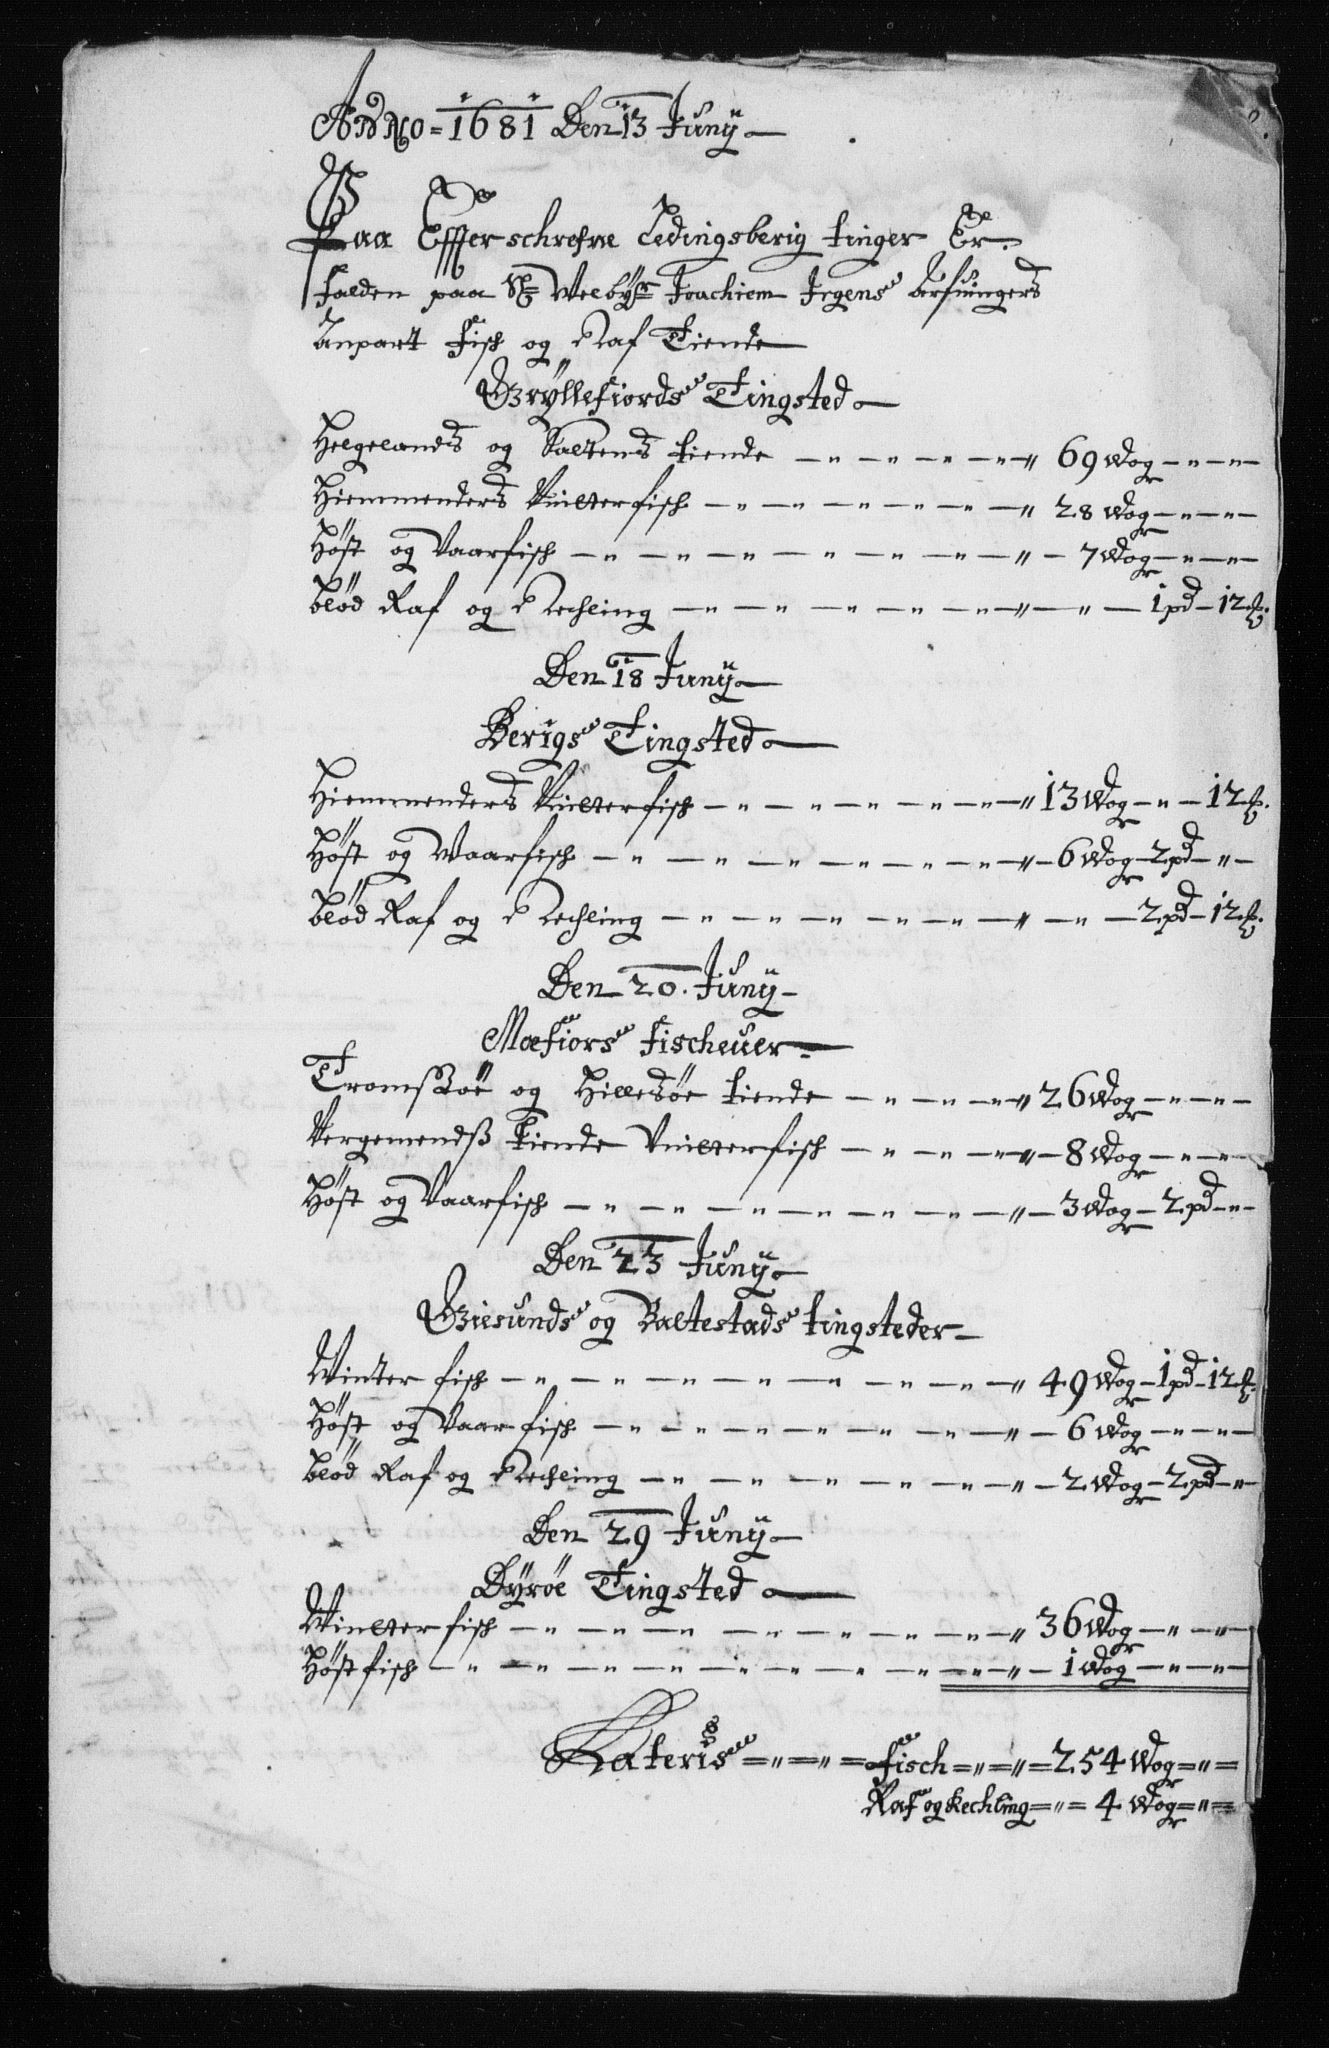 Anno = 1681 Den 13 Juny
Paa Effterschrefne Ledingsberig tinger Er
falden paa Sl: Velbyr: Joachiem Irgens Arfuingers
Anpart Fisk og Raf Tiende
Gryllefiords Tingsted
Helgelands og Saltens tiende — " — " — " — " 69 Wog — " — " —
Hiemmenders Vintterfisch — " — " — " — " — " 28 Wog — " — " —
Høst og Vaarfisch — " — " — " — " — " — " — " — 7 Wog — " — " —
blød Raf og Rechling — " — " — " — " — " — " — 1 pd — 12 ℔.
Den 18 Juny
Bergs Tingsted
Hiemmenders Vintterfisch — " — " — " — " — " 13 Wog — " — 12 ℔.
Høst og Waarfisch — " — " — " — " — " — " — 6 Wog — 2 pd — " —
blød Raf og Rechling — " — " — " — " — " — " — " — 2 pd — 12 ℔.
Den 20. Juny
Mefiors fischeuer
Tromssøe og Hillesøe tiende — " — " — " 26 Wog — " — " —
Vergemendß Tiende Vintterfisch — " — " — " — 8 Wog — " — " —
Høst og Vaarfisch — " — " — " — " — " — " — " — 3 Wog — 2 pd — " —
Den 23 Juny
Giesunds og Baltestads tingsteder
Vinter fisch — " — " — " — " — " — " — " 49 Wog — 1 pd — 12 ℔.
Høst og Vaar fisch — " — " — " — " — " — " — 6 Wog — " — " —
blød Raf og Rechling — " — " — " — " — " — " — 2 Wog — 2 pd — " —
Den 29 Juny
Dyrøe Tingsted
Vintter fisch — " — " — " — " — " — " — " 36 Wog — " — " —
Høst fisch — " — " — " — " — " — " — " — " — 1 Wog — " — " —
Lateris = " = " = fisch = " = " = 254 Wog = " =
Raf og Rechling = " = 4 Wog = " =